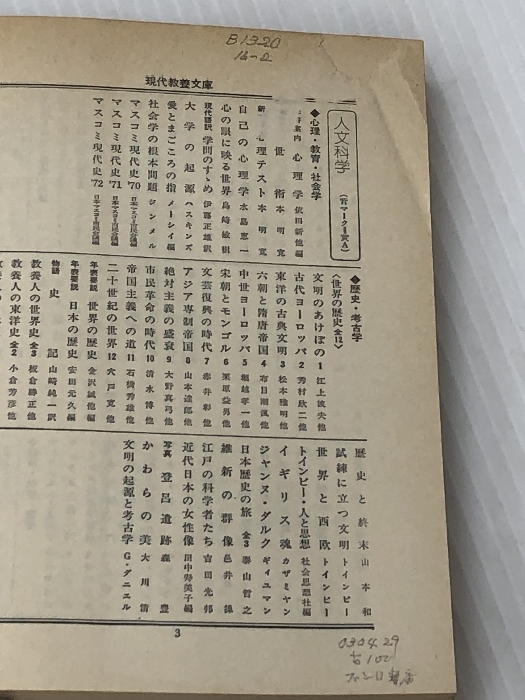 B1320
現代教養文庫
人文科学
(青マーク=黄A)
◆心理・教育・社会学
心理学 依田新他編
世術 本明寛
心理テスト 本明寛
自己の心理学 水島恵一
心の眼に映る世界 島崎敏樹
現代語訳 学問のすゝめ 伊藤正雄訳
大学の起源 ハスキンズ
愛とまごころの指 メートシイ編
社会学の根本問題 ジンメル
マスコミ現代史'70
マスコミ現代史'71
マスコミ現代史'72
◆歴史・考古学
〈世界の歴史全12〉
文明のあけぼの1 江上波夫他
古代ヨーロッパ2 秀村欣二他
東洋の古典文明3 松本雅明他
六朝と隋唐帝国4 布目潮渢他
中世ヨーロッパ5 堀越孝一他
宋朝とモンゴル6 栗原益男他
文芸復興の時代7 赤井彰他
アジア専制帝国8 山本達郎他
絶対主義の盛衰9 大野真弓他
市民革命の時代10 清水博他
帝国主義への道11 石橋秀雄他
二十世紀の世界12 穴戸寛他
年表要説 世界の歴史 金沢誠他編
年表要説 日本の歴史 安田元久編
物語 史記 山崎純一訳
教養人の世界史 全3 板倉勝正他
教養人の東洋史 全2 小倉芳彦他
歴史と終末 山本和
試練に立つ文明 トインビー
世界と西欧 トインビー
トインビー・人と思想 社会思想社編
イギリス魂 カザミヤン
ジャンヌ・ダルク ギィユマン
日本歴史の旅 全3 奈山哲之
維新の群像 邑井操
江戸の科学者たち 吉田光邦
近代日本の女性像 田中寿美子編
写真 登呂遺跡 森豊
かわらの美 大川清
文明の起源と考古学 G・ダニエル
3
030429